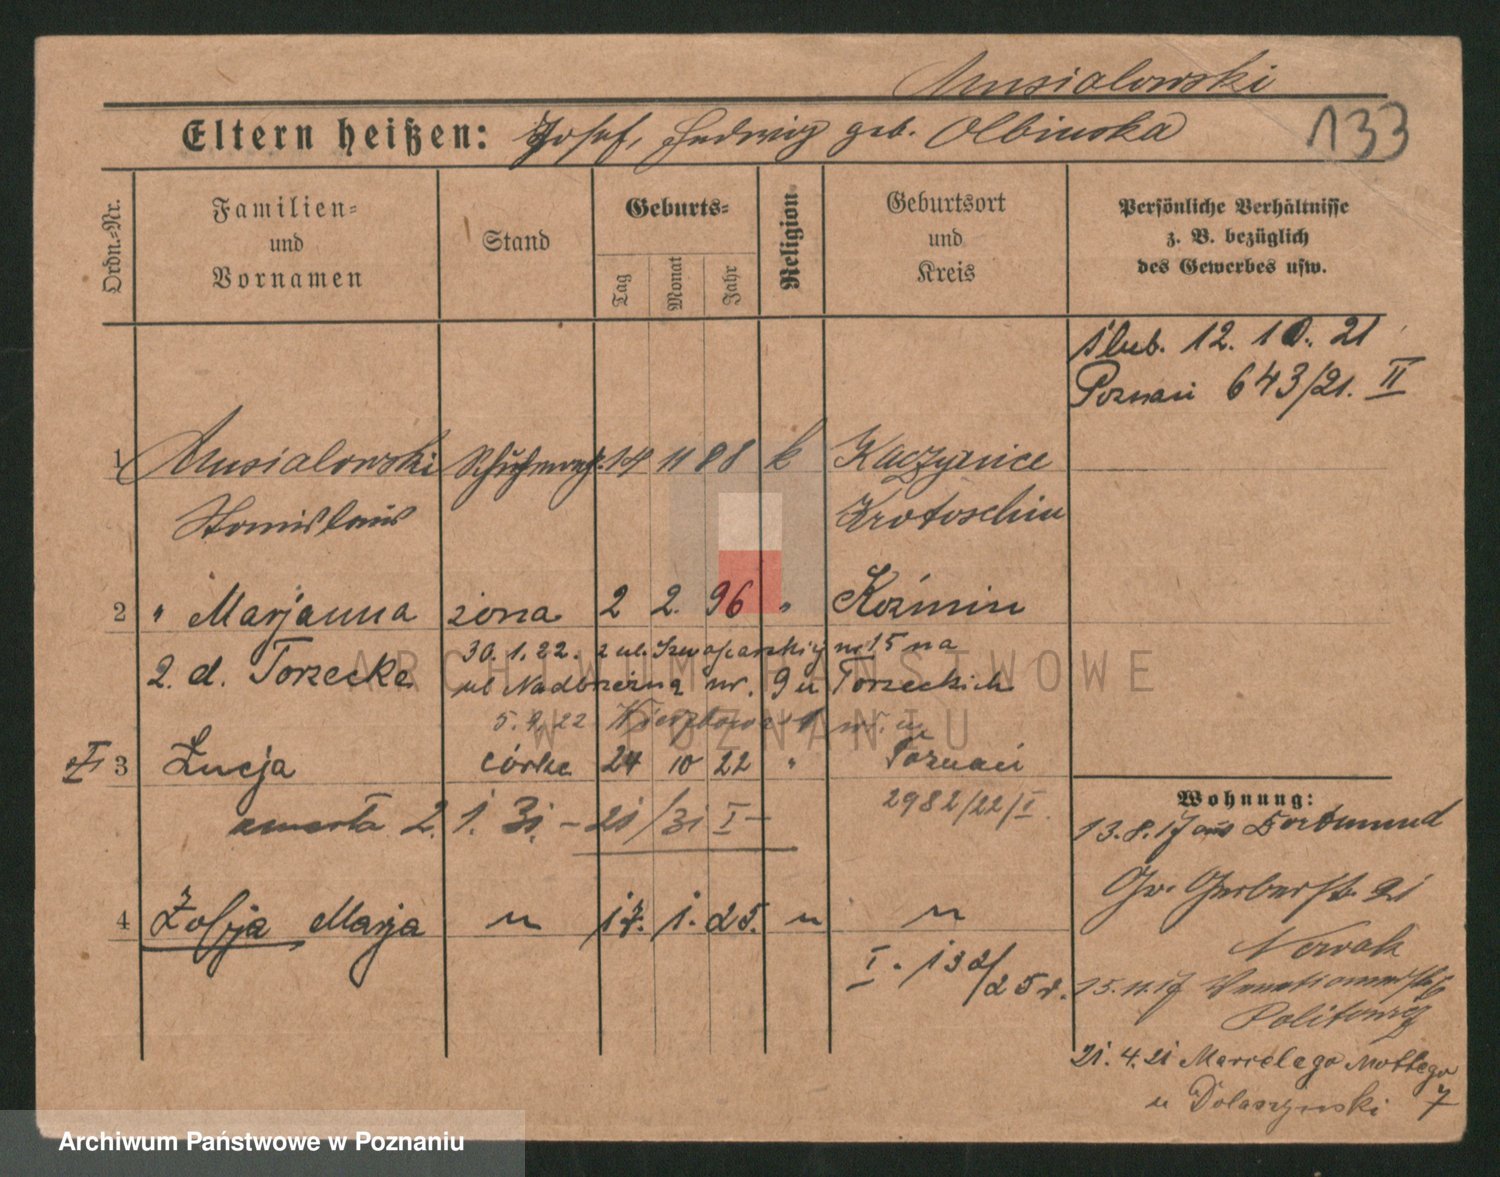 Musialowski
Eltern heißen: Josef, Hedwig geb. Olbinska
133
Ordn.-Nr.
Familien-
und
Vornamen
Stand
Geburts-
Tag
Monat
Jahr
Religion
Geburtsort
und
Kreis
Persönliche Verhältnisse
z. B. bezüglich
des Gewerbes usw.
ślub. 12. 10. 21
Poznań 643/21. II
1 Musialowski 14 11 88 k
Stanislaus Krotoschin
2 " Marjanna żona 2 2. 96 " Koźmin
2. d. Torzecke 30. 1. 22. z ul. nr 15 na
ul Nadbrzeżną nr. 9 u Torzeckich
5. 9. 22
3 Łucja córka 24 10 22 " Poznań
2982/22/I.
2. 1. 31 - 21/31 I -
4 Zofja Marja " 17. 1. 25. " "
I. 132/25 r.
Wohnung:
13.8.17 aus Dortmund
Gr. Gerberstr. 21
Nowak
15.11.17
21. 4. 21 Marcelego Mottego 7
u Dolaszyński
ARCHIWUM PAŃSTWOWE
W POZNANIU
Archiwum Państwowe w Poznaniu